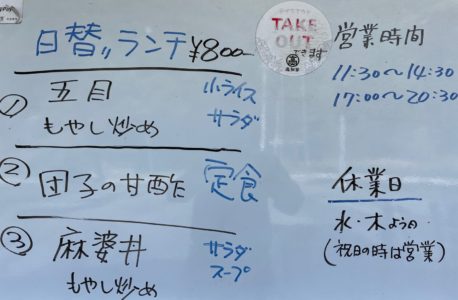 日替〃ランチ ¥800-
① 五目 小ライス
もやし炒め サラダ
② 団子の甘酢 定食
③ 麻婆丼 サラダ
もやし炒め スープ
TAKE
OUT
できます
営業時間
11:30〜14:30
17:00〜20:30
休業日
水・木ようの
(祝日の時は営業)